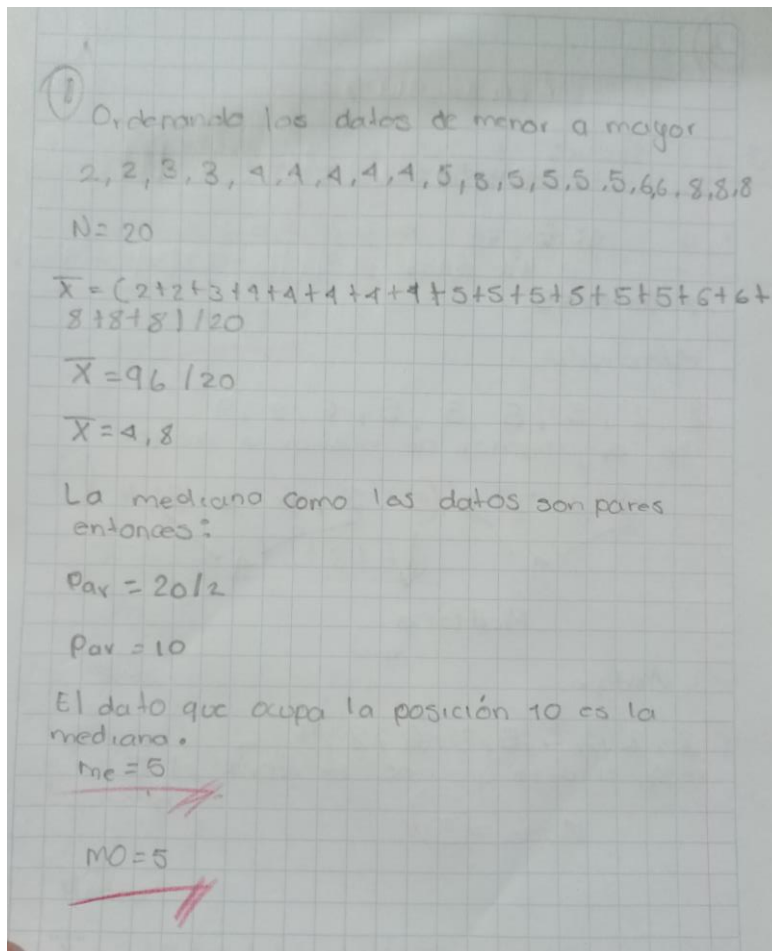 1
Ordenando los datos de menor a mayor
2, 2, 3, 3, 4, 4, 4, 4, 4, 5, 5, 5, 5, 5, 5, 6, 6, 8, 8, 8
N = 20
X̅ = (2+2+3+4+4+4+4+4+5+5+5+5+5+5+6+6+
8+8+8) / 20
X̅ = 96 / 20
X̅ = 4,8
La mediana como los datos son pares
entonces:
Par = 20/2
Par = 10
El dato que ocupa la posición 10 es la
mediana.
me = 5
MO = 5